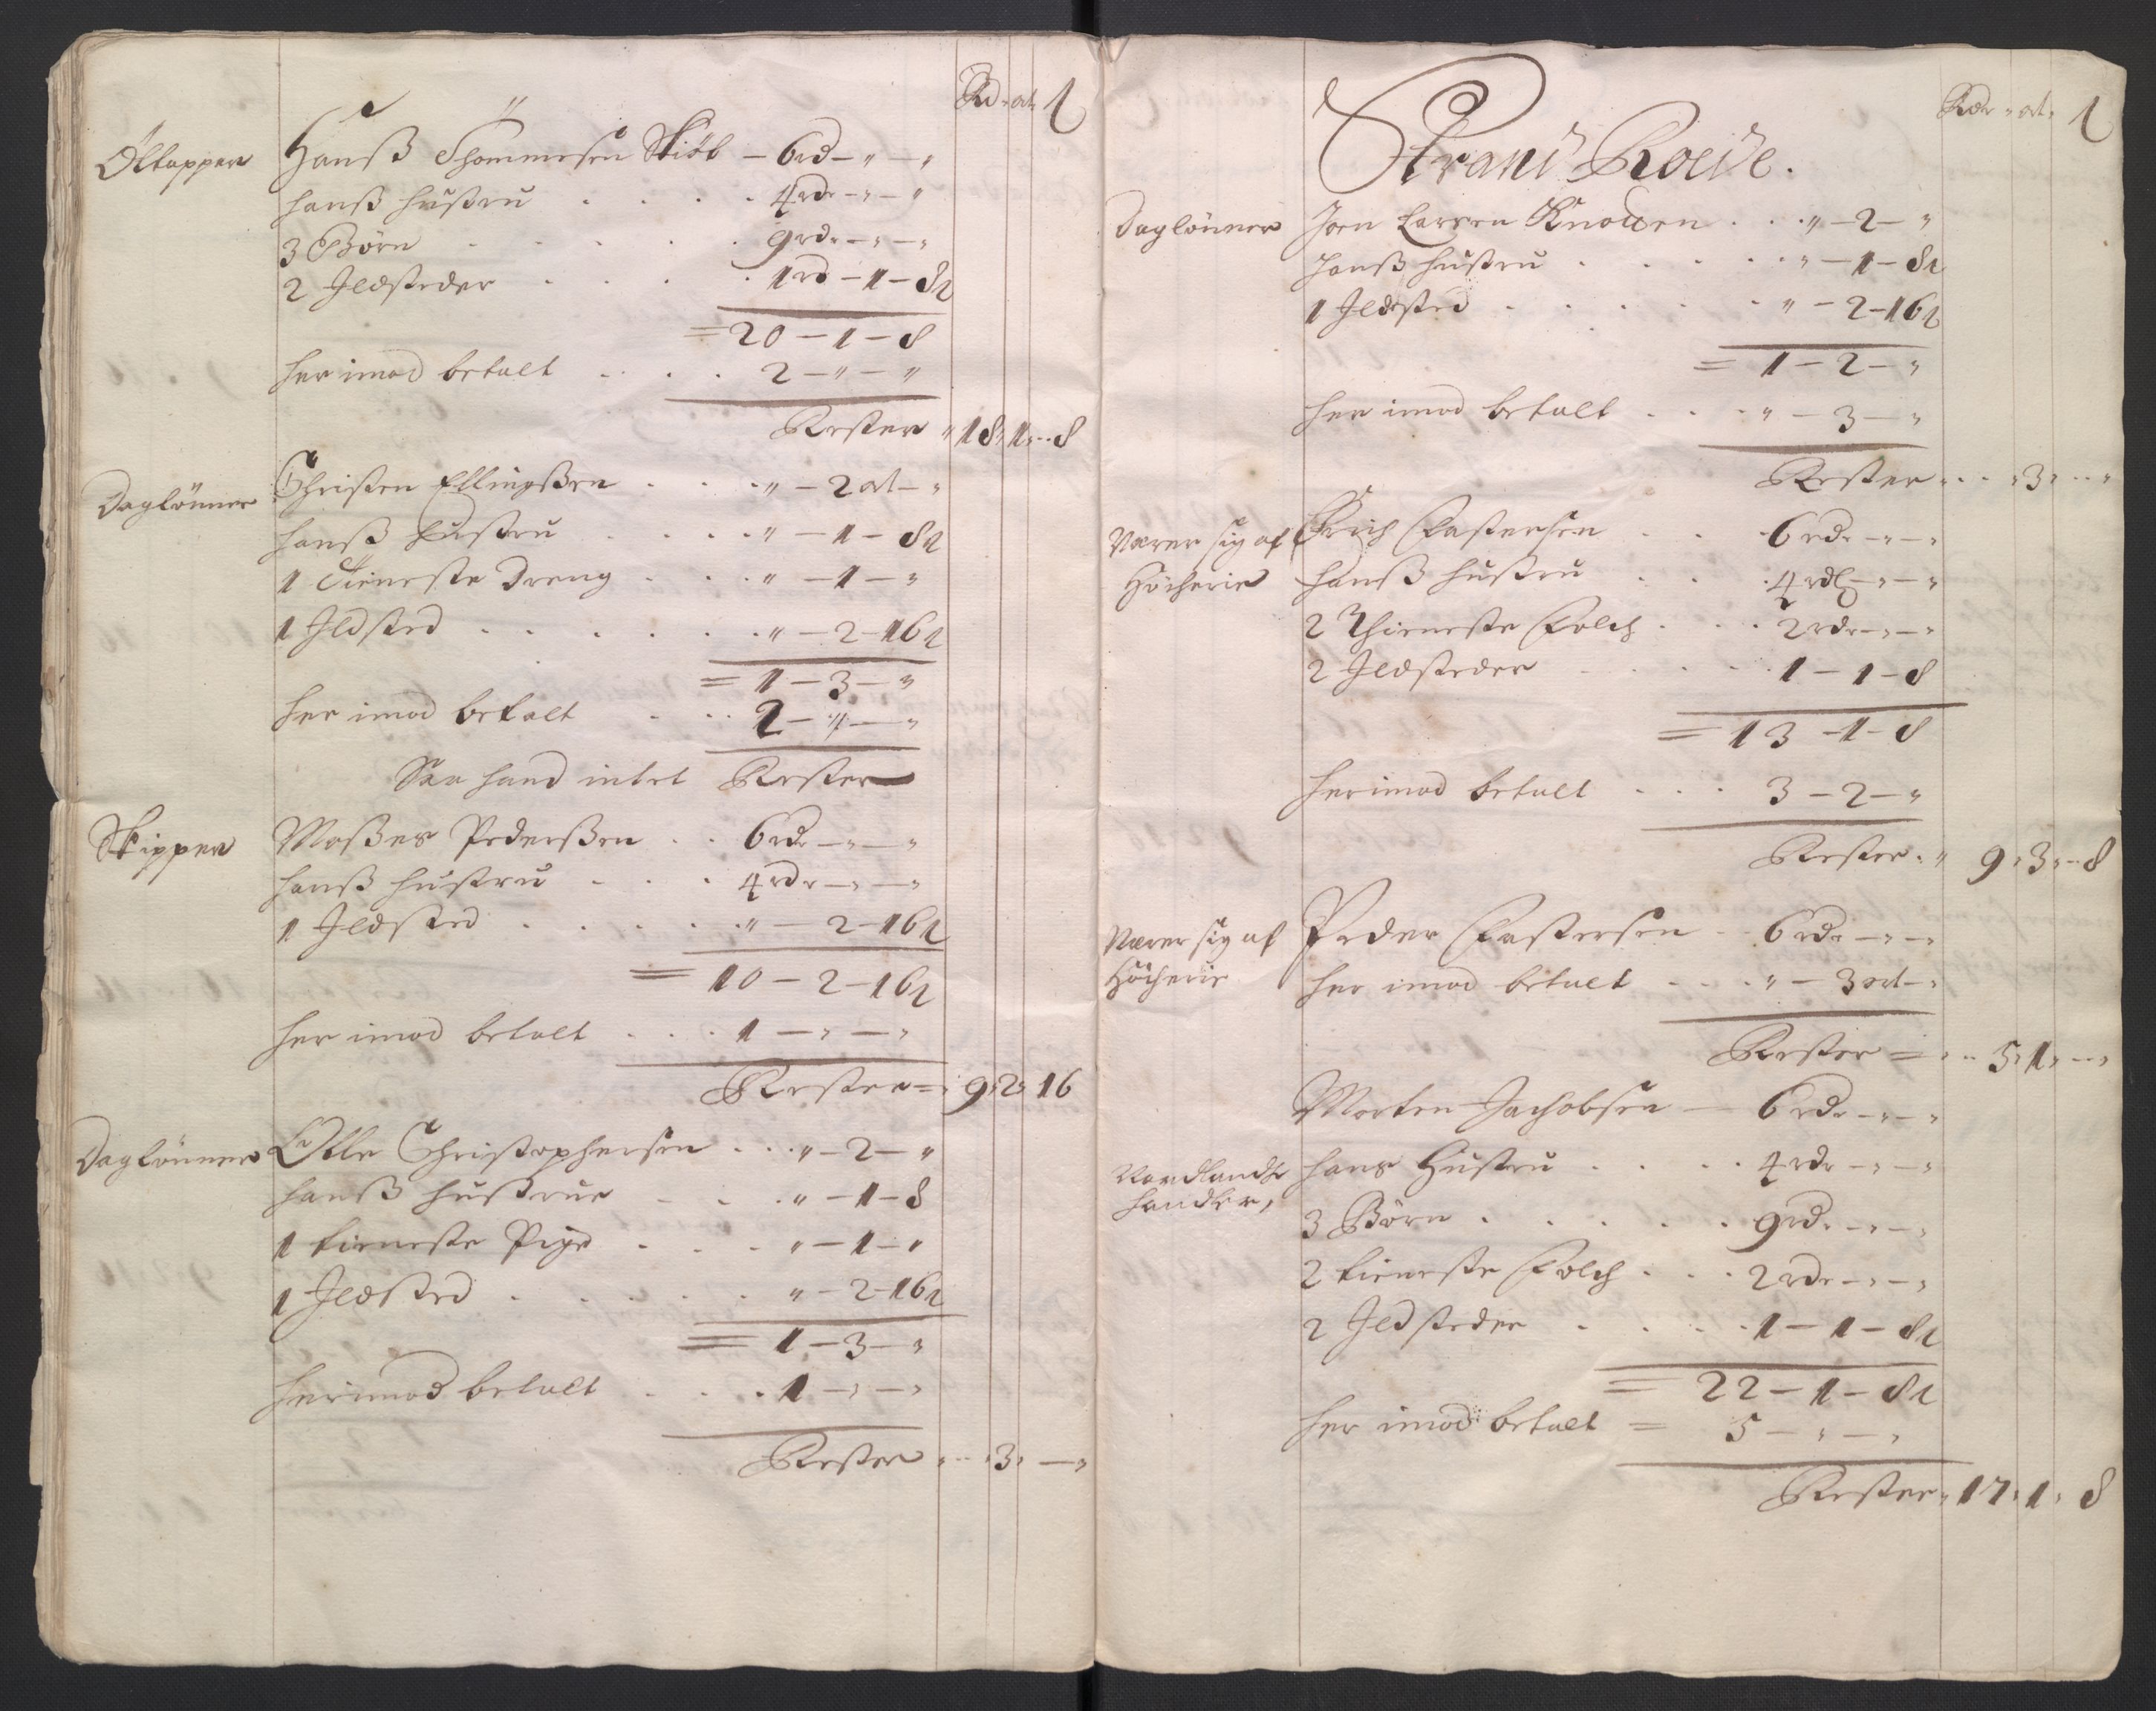 Rd - ort - ẞ
Øltapper Hanß Thommesen Skiöt — 6rd — " — "
hanß hustru . . . . 4rdr — " — "
3 Börn . . . . . 9rdr — " — "
2 Ildsteder . . . . 1rd — 1 — 8ẞ
= 20 — 1 — 8
her imod betalt . . . . 2 — " — "
Rester " 18 " 1 " 8
Daglönner Christen Ellingßen . . . " — 2 ort — "
hanß hustru . . . . " — 1 — 8ẞ
1 Tieneste Dreng . . . " — 1 — "
1 Ildsted . . . . . . " — 2 — 16ẞ
= 1 — 3 — "
her imod betalt . . . 2 — " — "
Saa hand intet Rester
Skipper Moßes Pederßen . . 6rdr — " — "
hanß hustru . . . 4rdr — " — "
1 Ildsted . . . . . " — 2 — 16ẞ
= 10 — 2 — 16ẞ
her imod betalt . . . 1 — " — "
Rester = " 9 " 2 " 16
Daglönner Olle Christophersen . . . " — 2 — "
hanß hustrue . . . " — 1 — 8
1 tieneste Pige . . . " — 1 — "
1 Ildsted . . . . . " — 2 — 16ẞ
= 1 — 3 — "
herimod betalt . . . 1 — " — "
Rester " . . " 3 " — "
Rdr - ort - ẞ
Strand Roede.
Daglönner Joen Larsen . . . " — 2 — "
hanß hustru . . . . . " — 1 — 8ẞ
1 Ildsted . . . . . " — 2 — 16ẞ
= 1 — 2 — "
her imod betalt . . . " — 3 — "
Rester " . . " 3 " . . "
Nærer sig af Erich Castensen . . 6rdr — " — "
Höcherie hanß hustru . . 4rdr — " — "
2 Thieneste Folch . . . 2rdr — " — "
2 Ildsteder . . . . 1 — 1 — 8
= 13 — 1 — 8
herimod betalt . . . 3 — 2 — "
Rester . " 9 " 3 " 8
Nærer sig af Peder Castensen — 6rdr — " — "
Höcherie her imod betalt . . . . " — 3 ort — "
Rester = " . . 5 " 1 " . . "
Morten Jachobsen — 6rdr — " — "
Nordlandß hans Hustru . . . . 4rdr — " — "
handler,
3 Börn . . . . . . 9rdr — " — "
2 tieneste Folch . . . 2rdr — " — "
2 Ildsteder . . . . 1 — 1 — 8ẞ
= 22 — 1 — 8ẞ
her imod betalt = 5 — " — "
Rester " 17 " 1 " 8